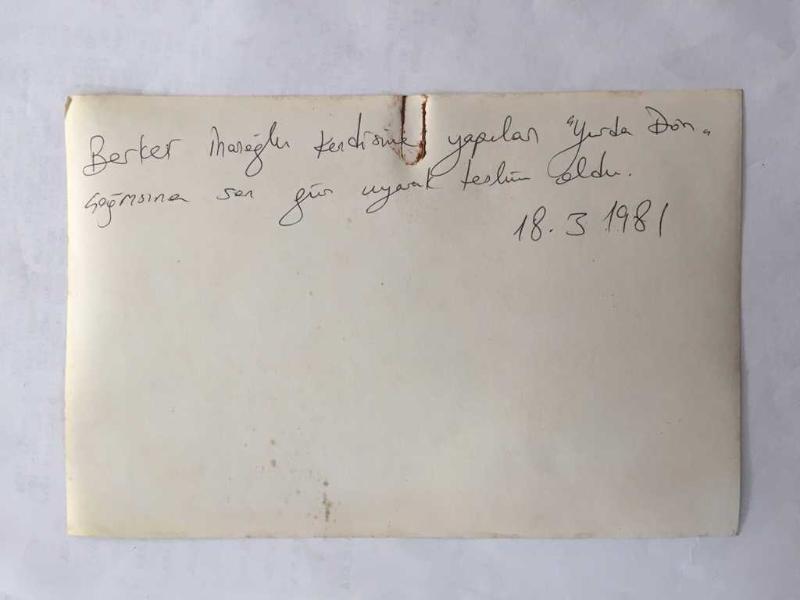 Berker İnanoğlu kendisine yapılan "Yurda Dön„
çağrısına son gün uyarak teslim oldu.
18.3 1981